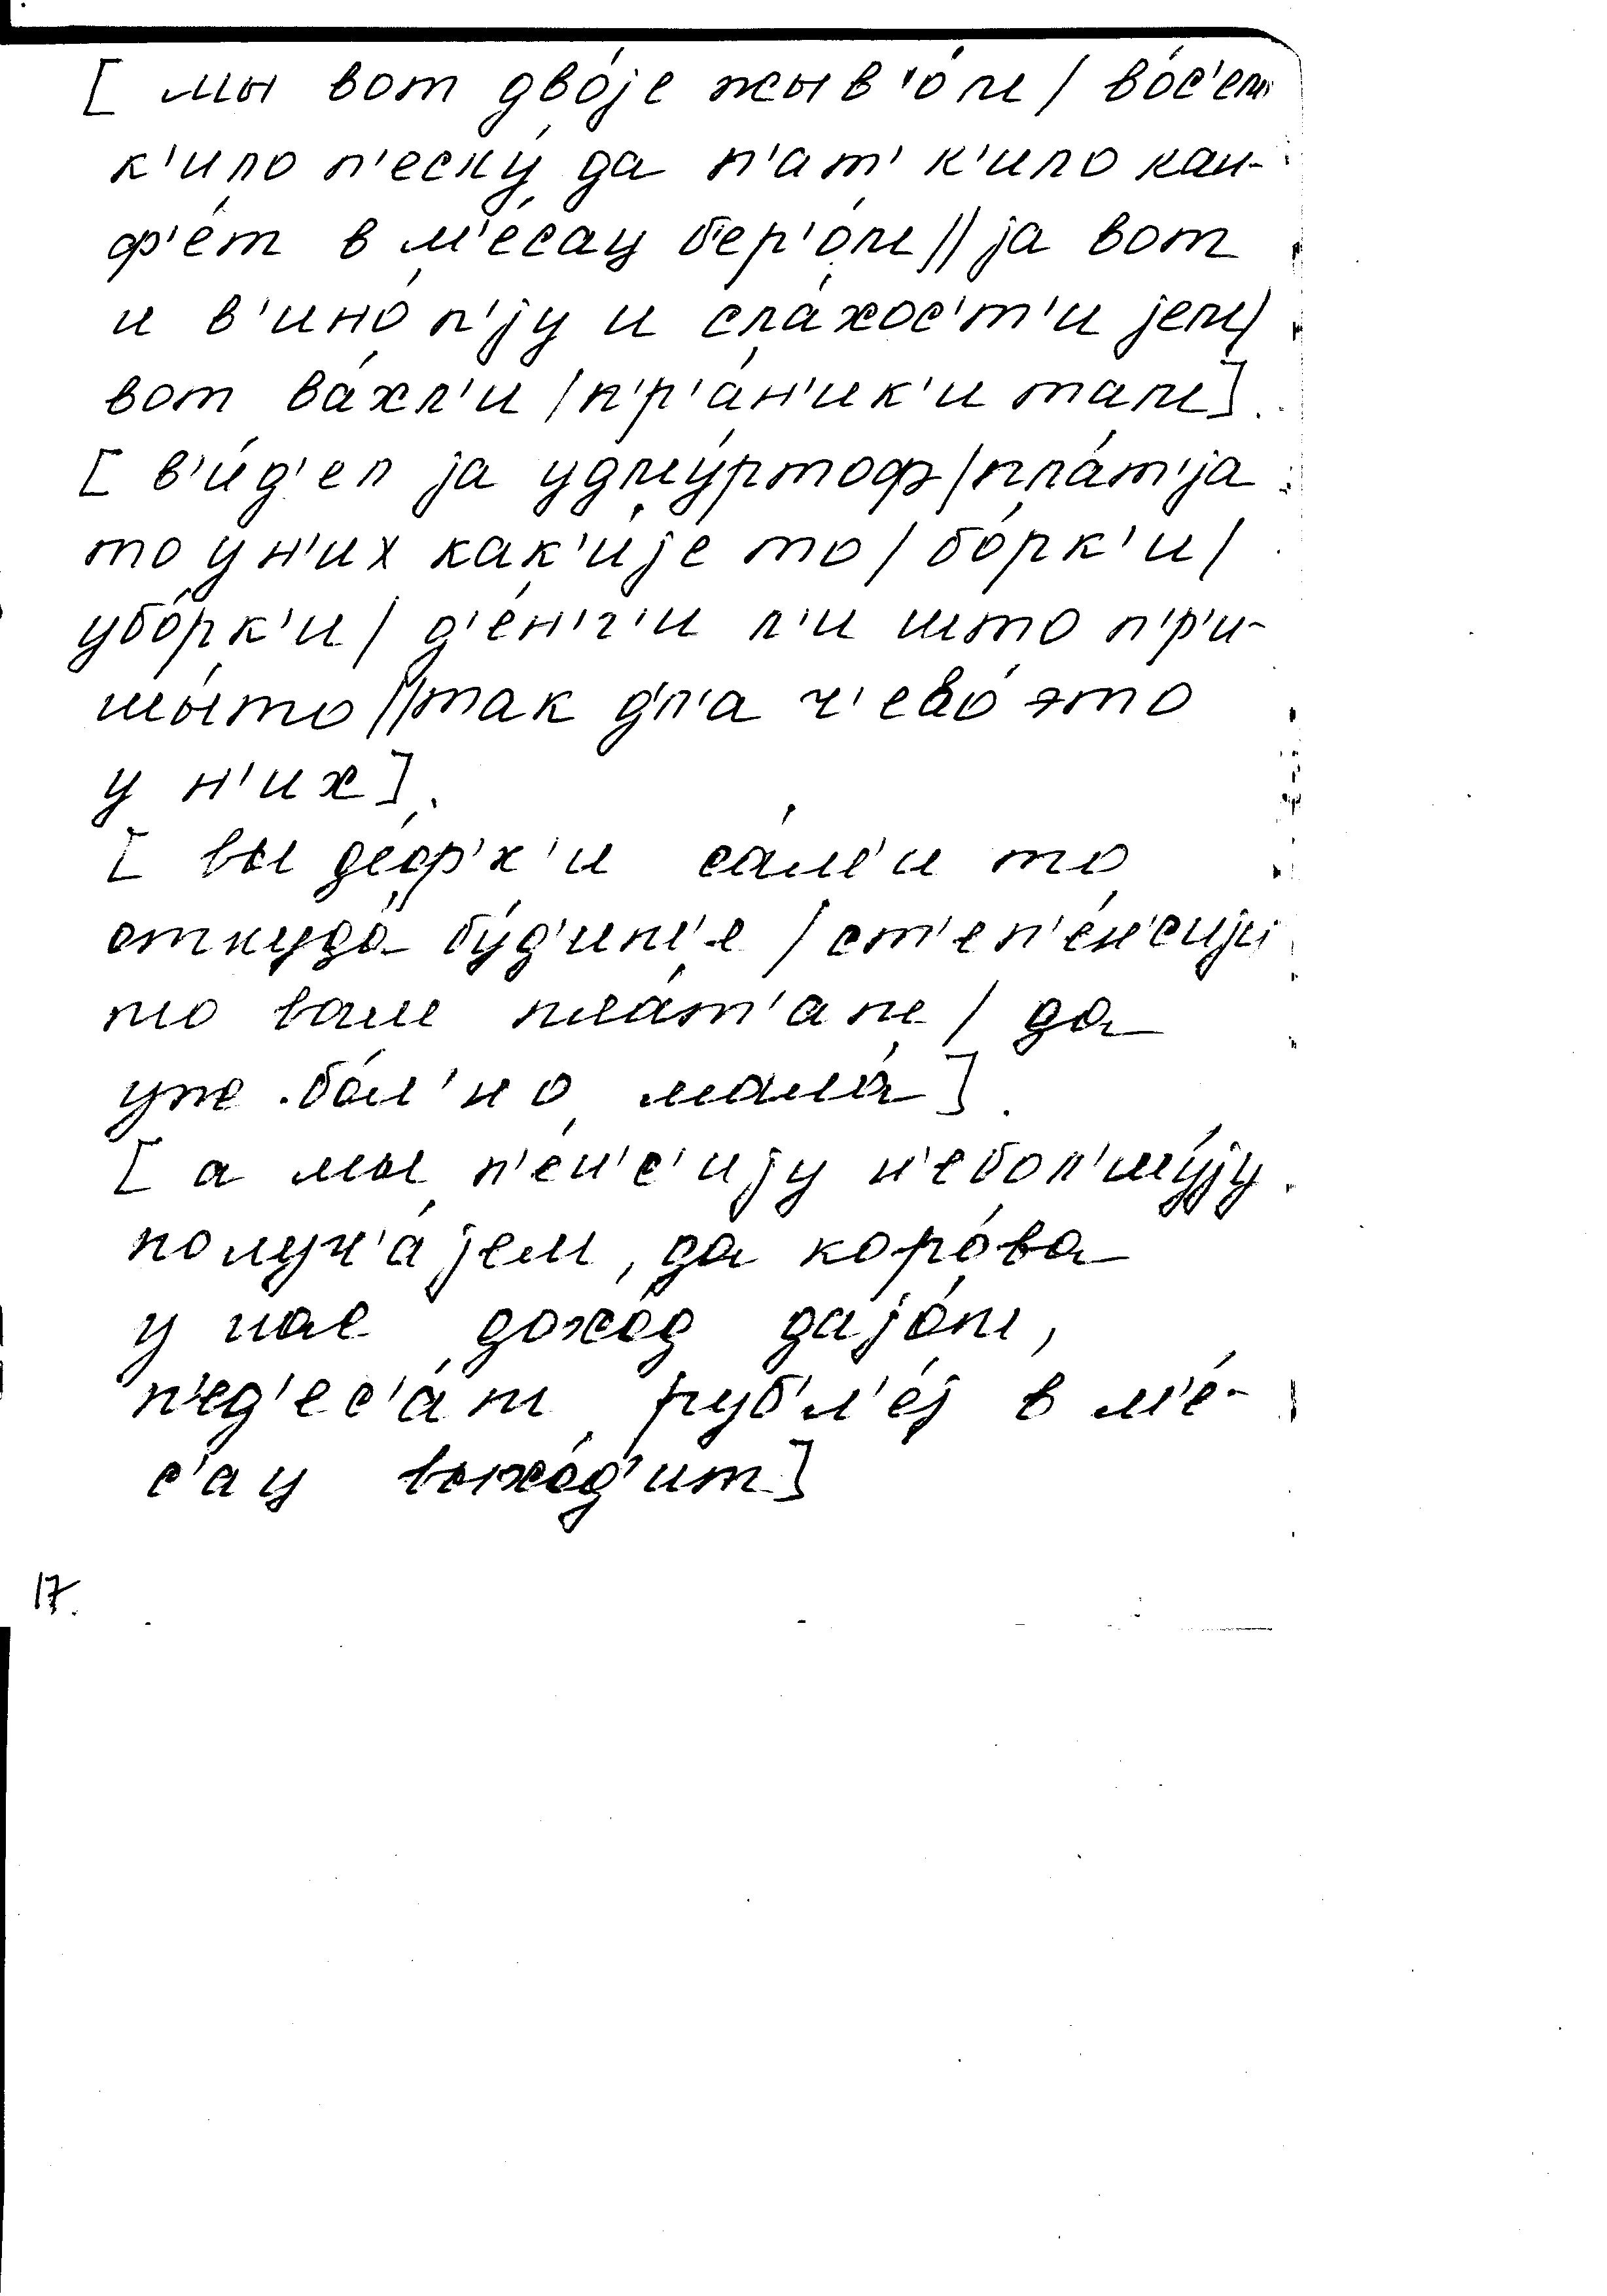 [ мы вот дво́jе жыв'о́м / во́с'ем
к'ило п'еску́ да п'ат' к'ило кан-
ф'е́т в м'е́сац б'ер'о́м // jа вот
и в'ино́ п'jу и сла́хос'т'и jем /
вот ва́хл'и / п'р'а́н'ик'и там ]
[ в'и́д'ел jа удму́ртоф / пла́т'jа
то у н'их как'иjе́ то / бо́рк'и /
убо́рк'и / д'е́н'г'и л'и што п'р'и-
шы́то // так дл'а ч'ево́ э́то
у н'их ].
[ вы де́ф'к'и са́м'и то
отку́да бу́д'ит'е / ст'еп'е́н'сиjи
то вам пла́т'ат / да
уж бо́л'но мала́ ].
[ а мы п'е́н'с'иjу н'ебол'шу́jу
получ'а́jем, да коро́ва
у нас дохо́д даjо́т,
п'ед'ес'а́т рубл'е́j в м'е́-
с'ац выхо́д'ит ]
17.